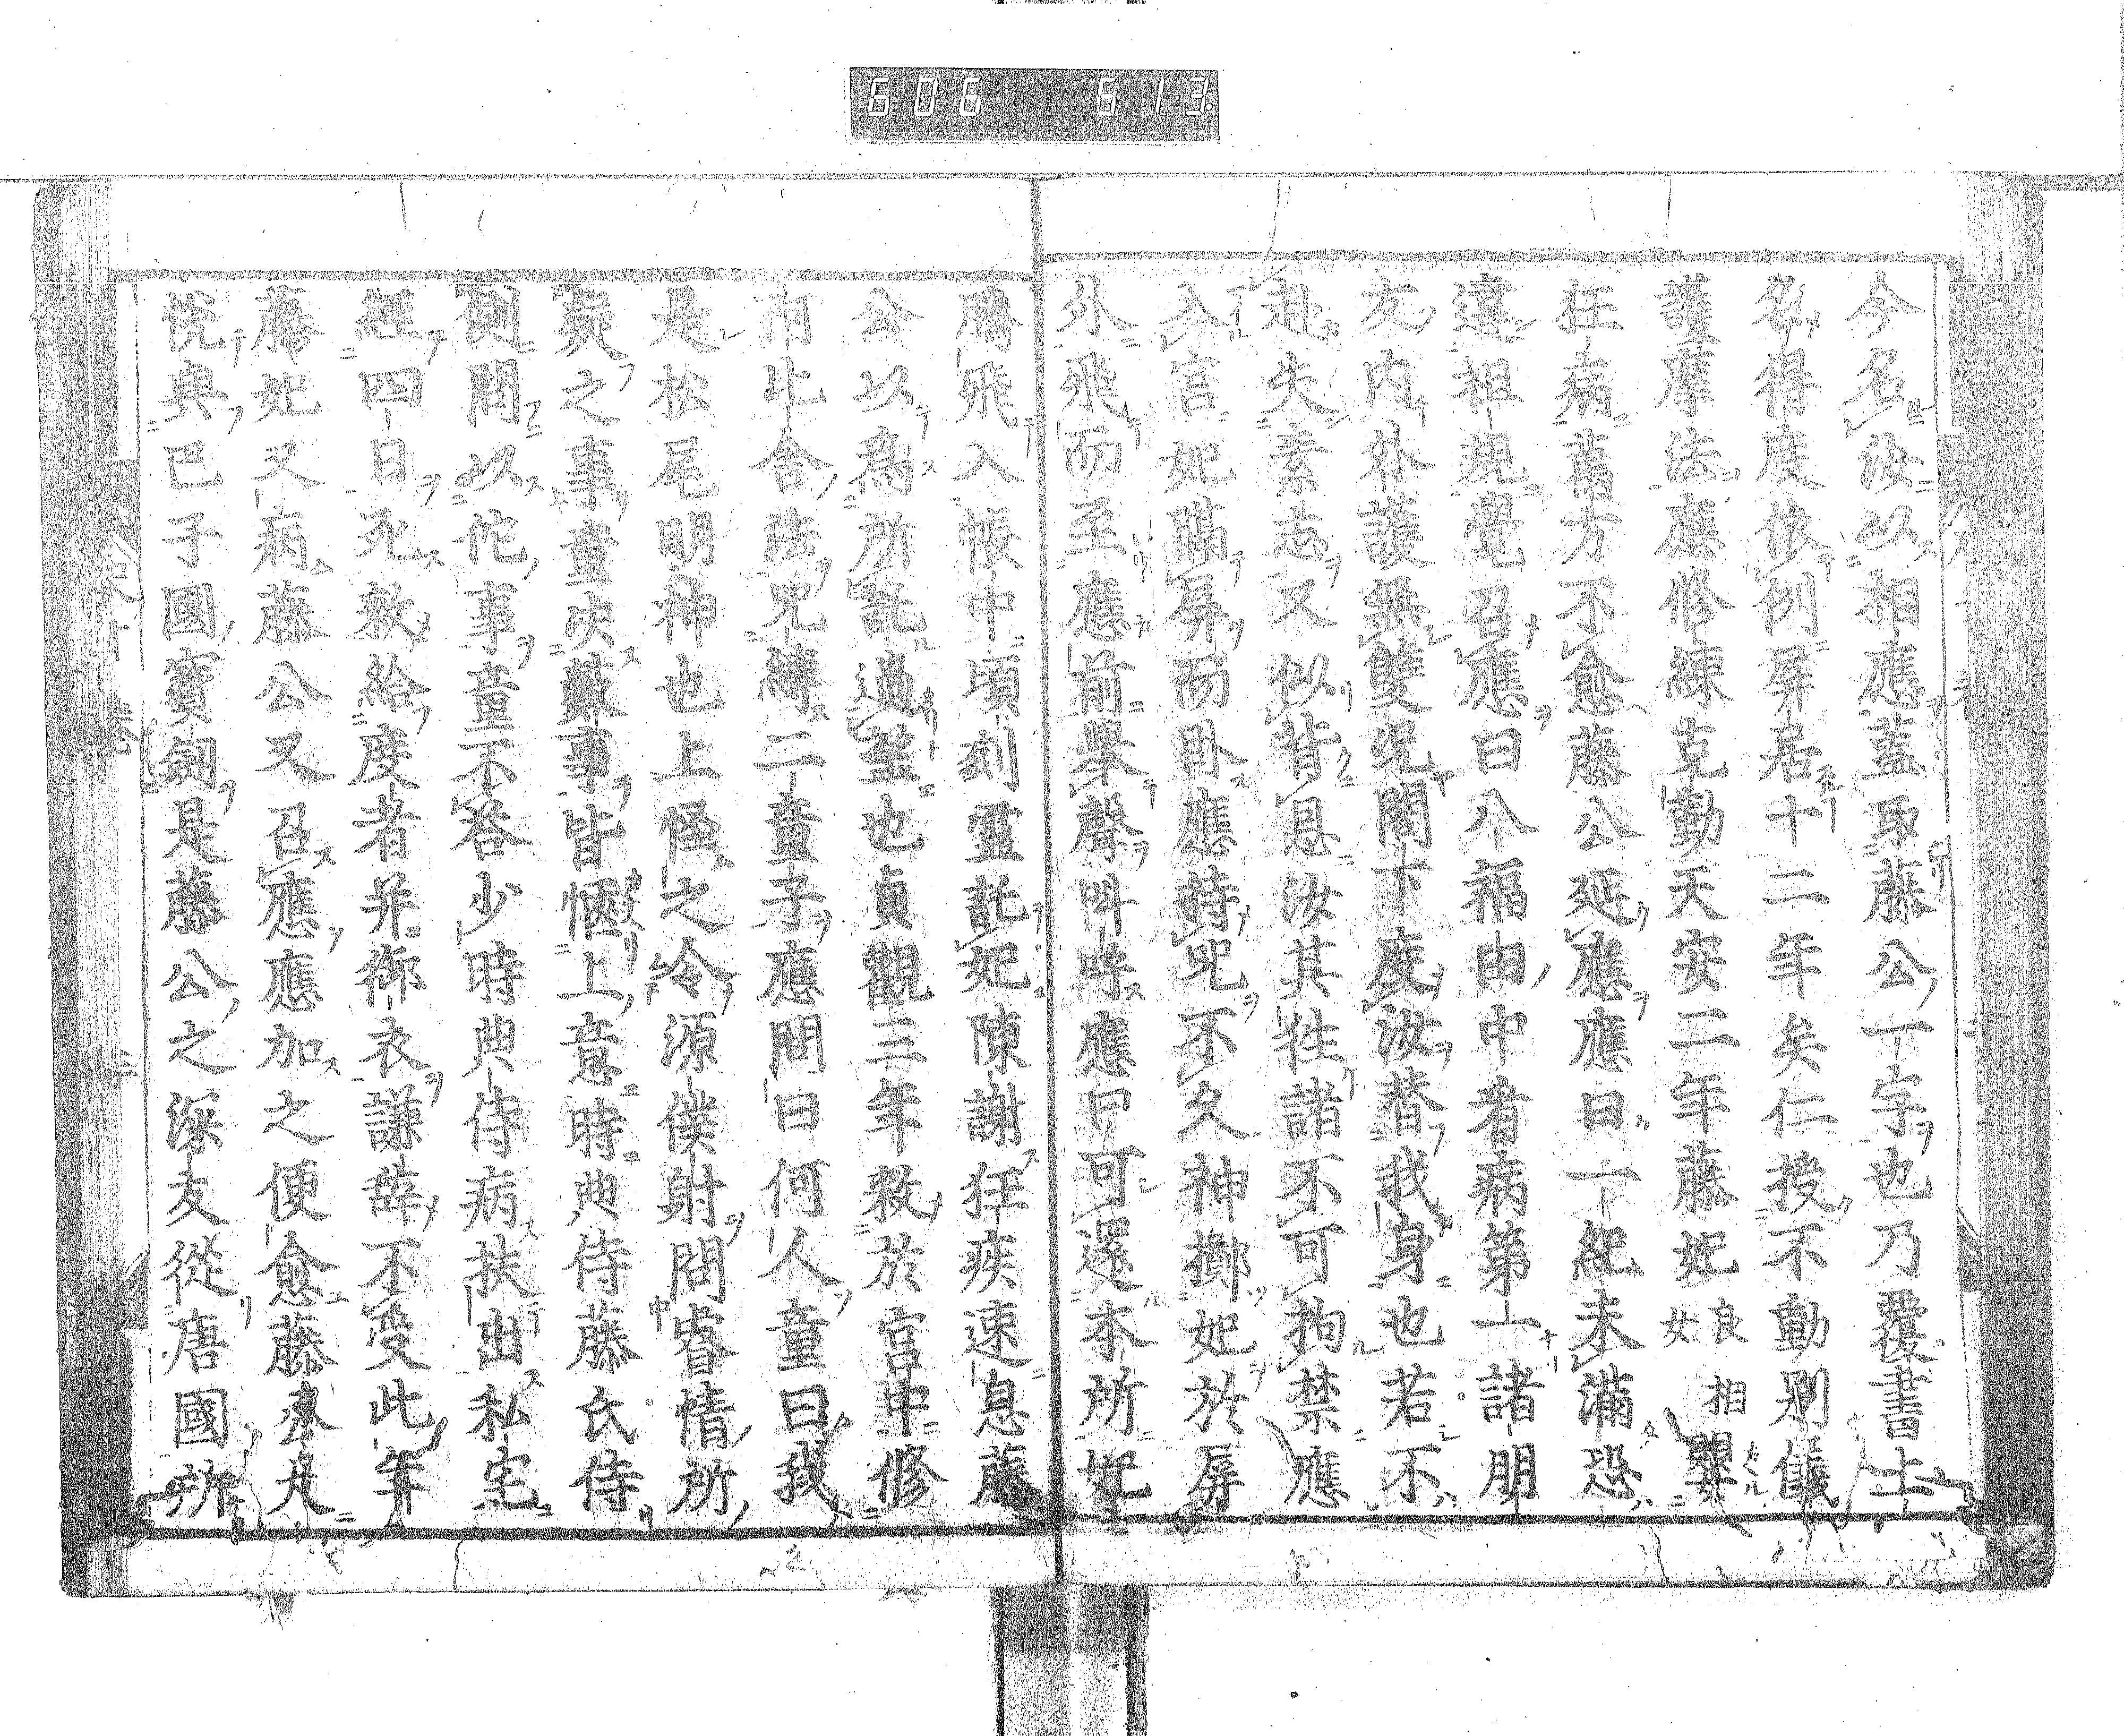 606 613
今名汝以相應蓋取藤公一字也乃覆書上
名得度依例屏居十二年矣仁授不動別儀
護摩法應修練克勤天安二年藤妃良相女嬰
狂病萬方不愈藤公延應應曰一紀未滿恐
違祖規覺召應曰八福田中看病第一諸朋
友内外護無雙況閤下度汝替我身也若不
赴失素志又似背恩汝其往諸不可拘禁應
入宮妃隔屏而卧應持咒不久神擲妃於屏
外飛而至應前舉聲叫呼應曰可還本所妃
騰飛入帳中頃刻靈託妃陳謝狂疾速息藤
公以爲所託過聖也貞觀三年敕於宮中修
阿比舍法咒縛二童子應問曰何人童曰我
是松尾明神也上怪之令源僕射問睿情所
疑之事童決數事皆愜上意時典侍藤氏侍
側問以佗事童不答少時典侍病扶出私宅
經四日死敕給度者并御衣謙辞不受此年
藤妃又病藤公又召應應加之便愈藤公大
悦與已子國寶劔是藤公之深友從唐國所